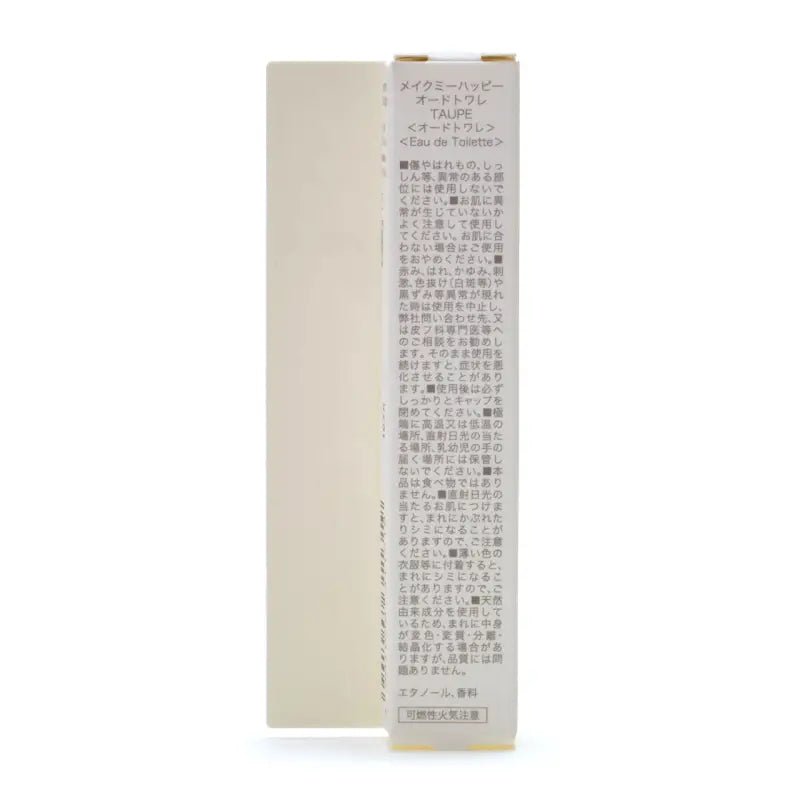 メイクミーハッピー
オードトワレ
TAUPE
＜オードトワレ＞
＜Eau de Toilette＞
■傷やはれもの、しっ
しん等、異常のある部
位には使用しないで
ください。■お肌に異
常が生じていないか
よく注意して使用し
てください。お肌に合
わない場合はご使用
をおやめください。■
赤み、はれ、かゆみ、刺
激、色抜け(白斑等)や
黒ずみ等異常が現れ
た時は使用を中止し、
弊社問い合わせ先、又
は皮フ科専門医等へ
のご相談をお勧めし
ます。そのまま使用を
続けますと、症状を悪
化させることがあり
ます。■使用後は必ず
しっかりとキャップを
閉めてください。■極
端に高温又は低温の
場所、直射日光の当た
る場所、乳幼児の手の
届く場所には保管し
ないでください。■本
品は食べ物ではあり
ません。■直射日光の
当たるお肌につけま
すと、まれにかぶれた
りシミになることが
ありますので、ご注意
ください。■薄い色の
衣服等に付着すると、
まれにシミになるこ
とがありますので、ご
注意ください。■天然
由来成分を使用して
いるため、まれに中身
が変色・変質・分離・
結晶化する場合があ
りますが、品質には問
題ありません。
エタノール、香料
可燃性火気注意